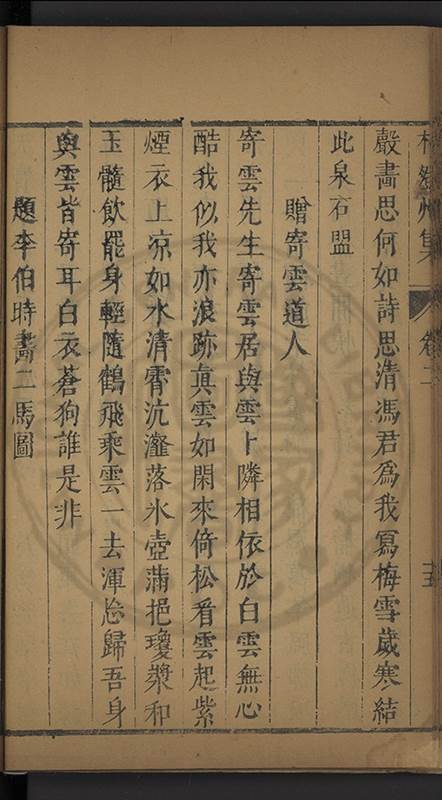 集 卷二 五
聲畵思何如詩思清馮君爲我寫梅雪歲寒結
此泉石盟
贈寄雲道人
寄雲先生寄雲居與雲卜隣相依於白雲無心
酷我似我亦浪跡眞雲如閑來倚松看雲起紫
煙衣上凉如水清霄沆瀣落氷壺滿挹瓊漿和
玉髓飲罷身輕隨鶴飛乘雲一去渾忘歸吾身
與雲皆寄耳白衣蒼狗誰是非
題李伯時畵二馬圖